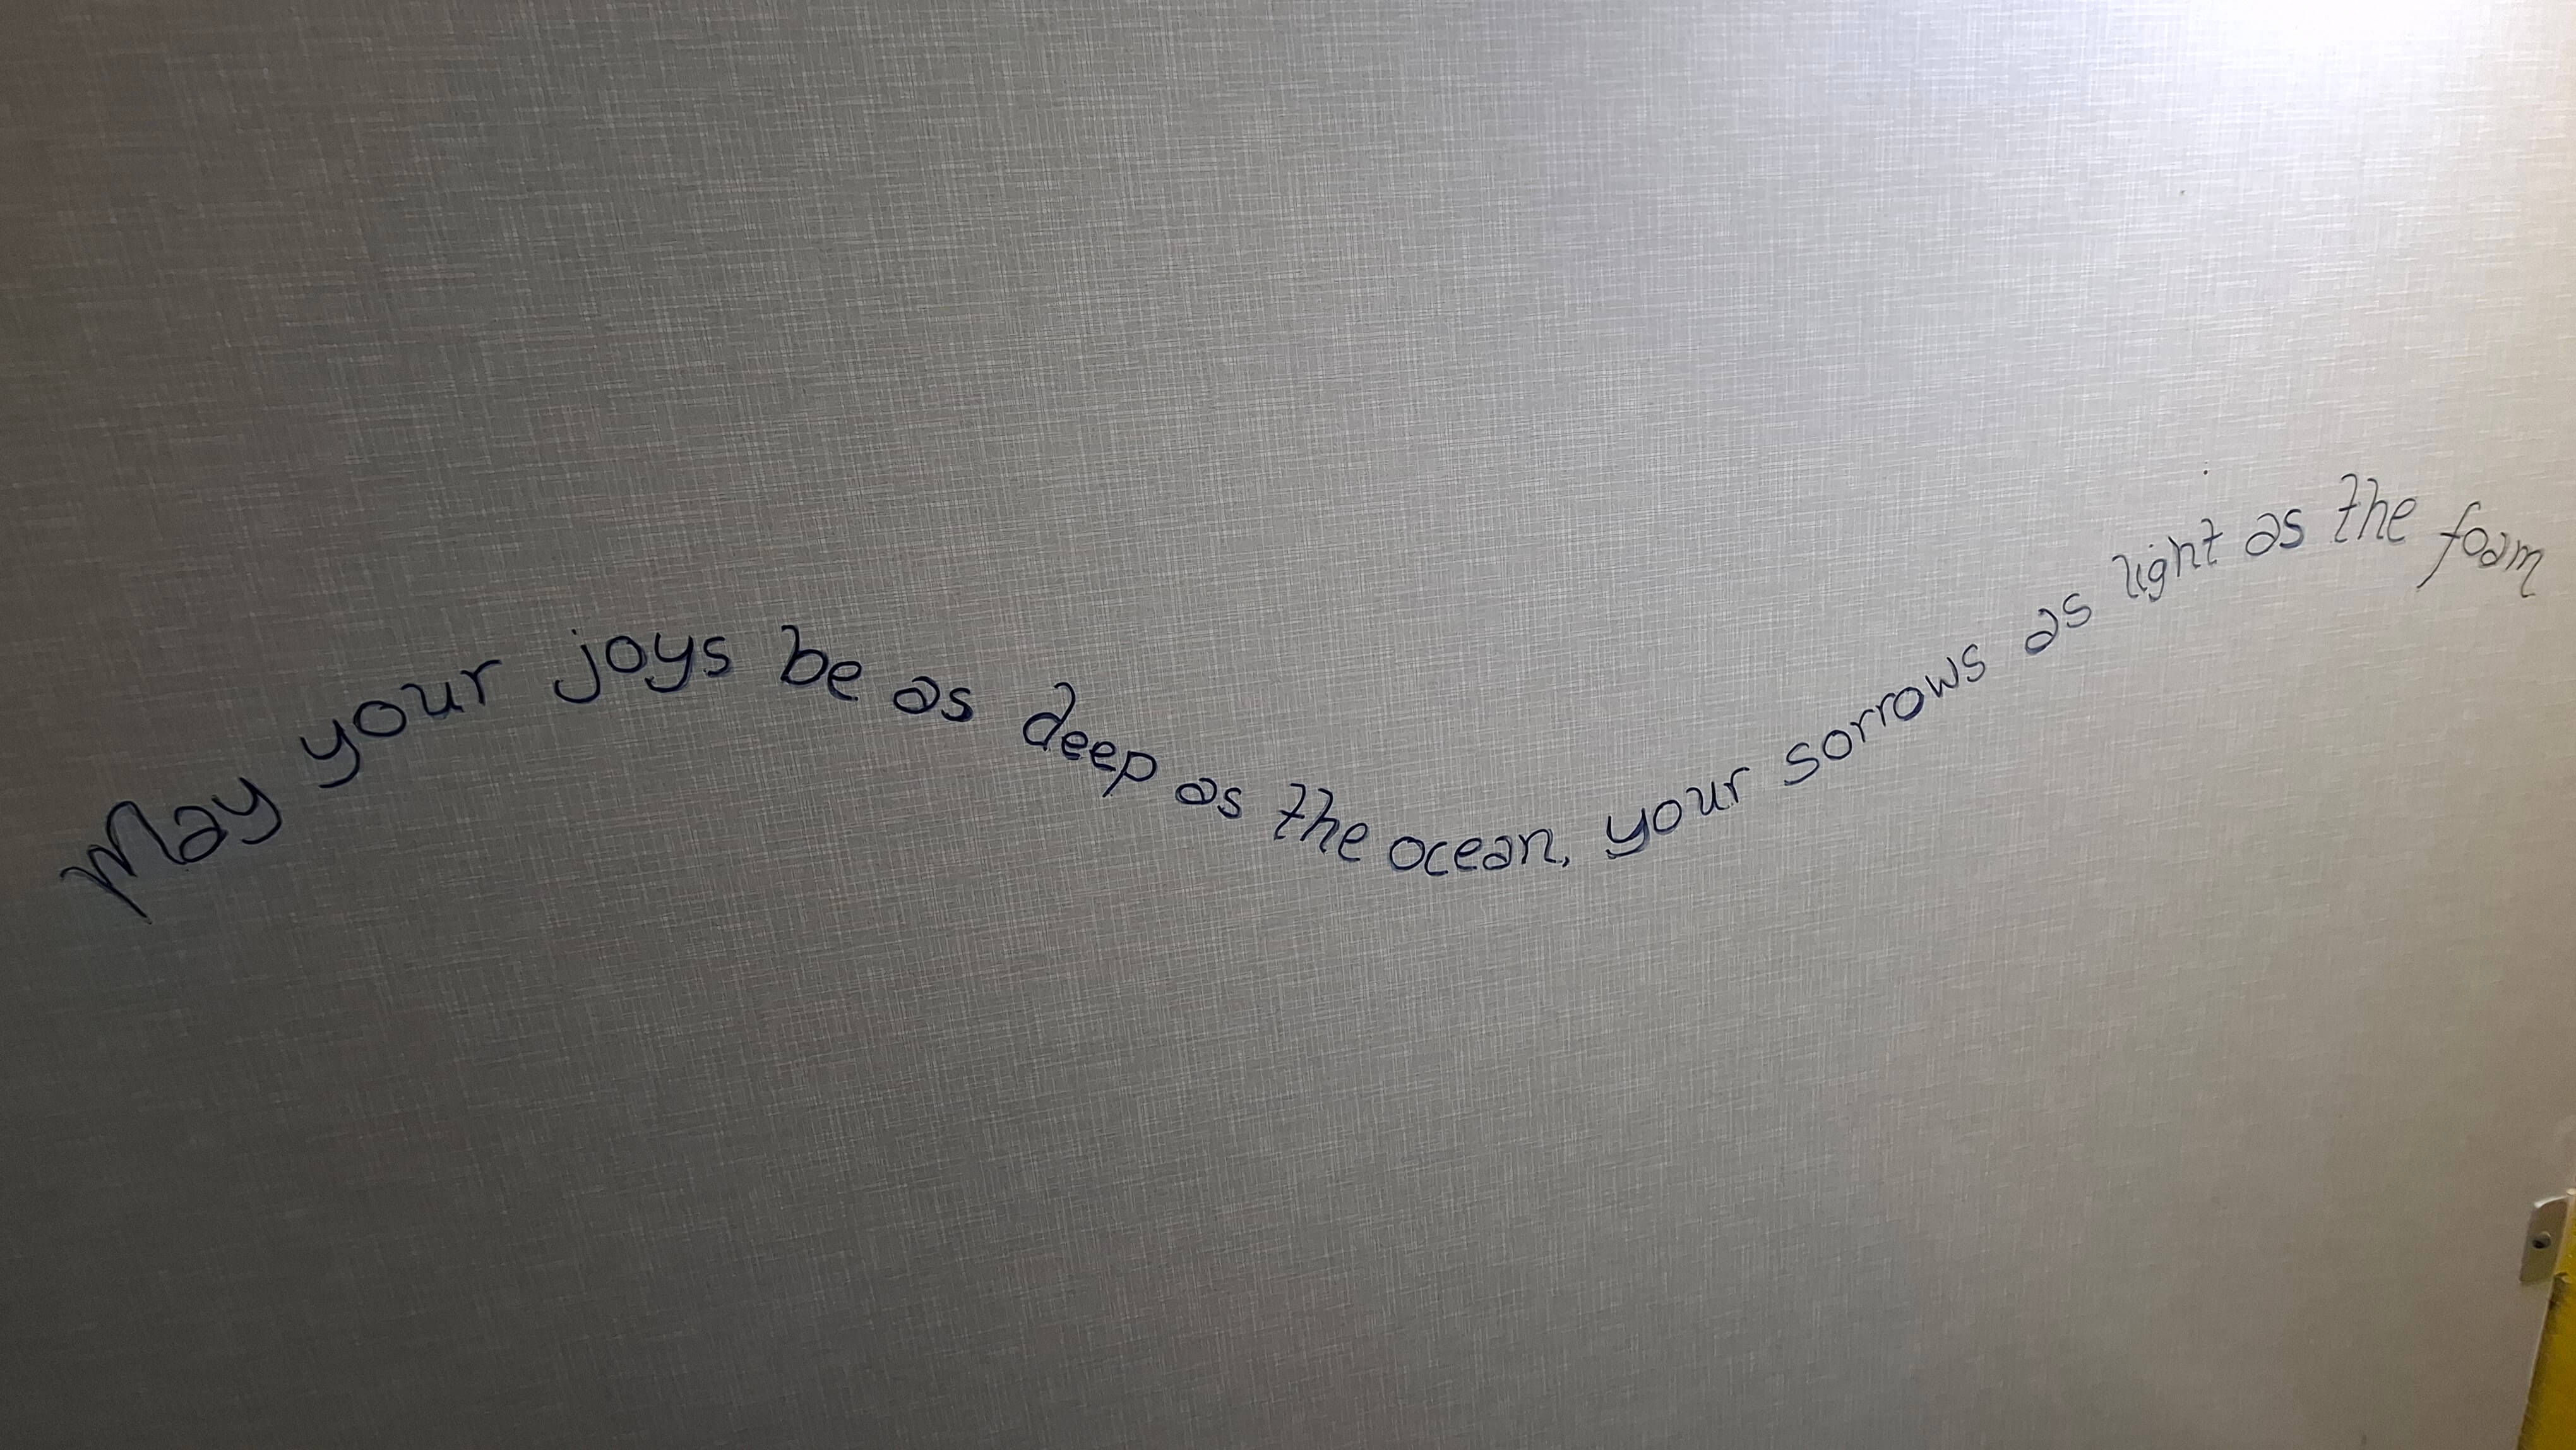 May your joys be as deep as the ocean, your sorrows as light as the foam